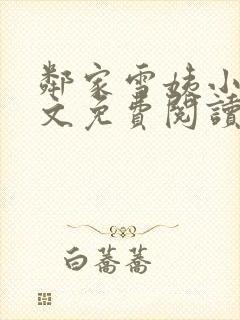 鄰家雪姨小
文免費閱讀
白蕎蕎